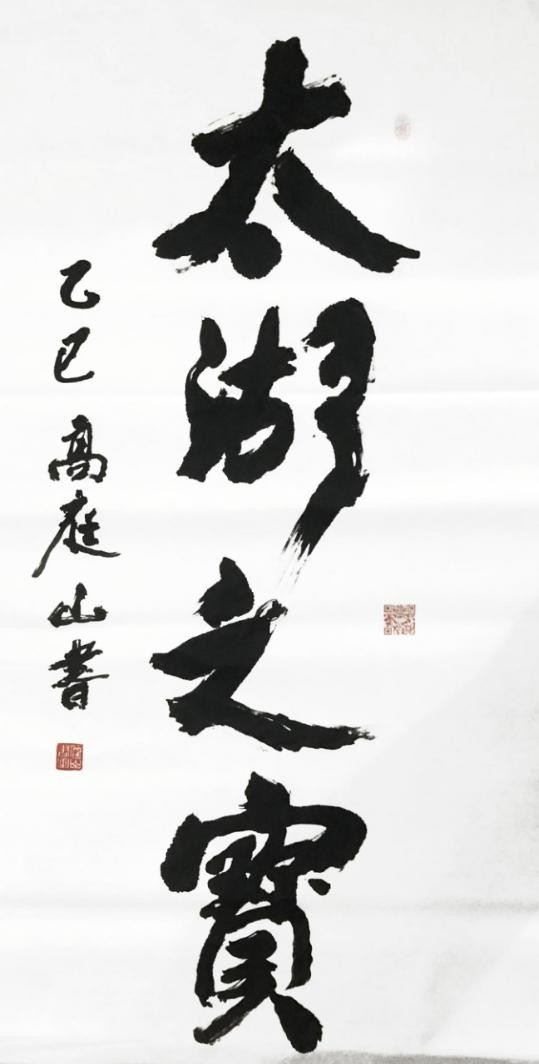 太湖之寶
乙巳 高庭山書